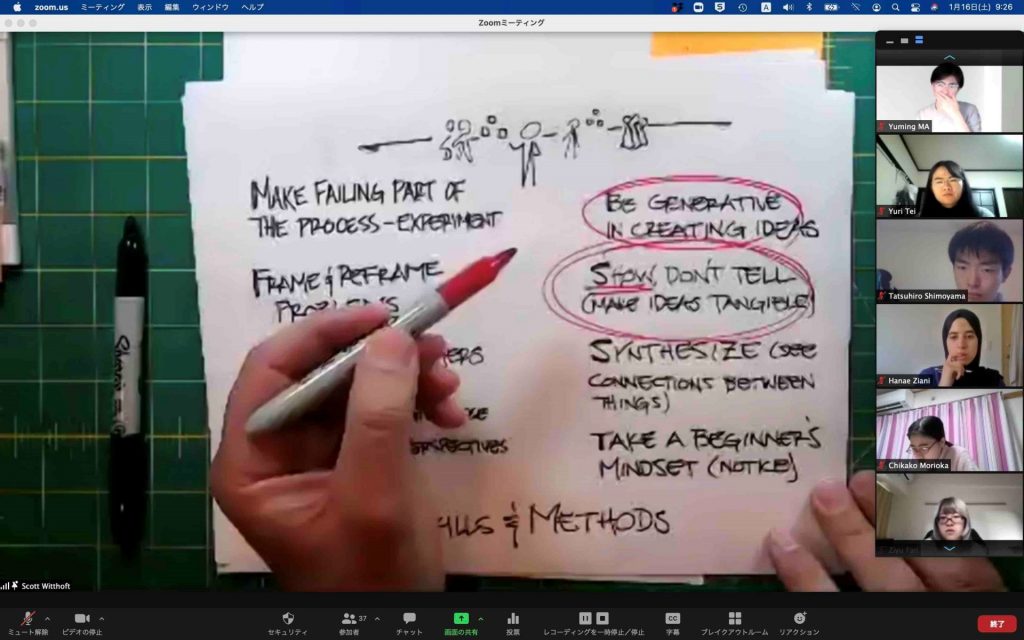 zoom.us ミーティング 表示 編集 ウィンドウ ヘルプ
1月16日(土) 9:26
Zoomミーティング
MAKE FAILING PART OF
THE PROCESS-EXPERIMENT
FRAME & REFRAME
PROBLEMS
BE GENERATIVE
IN CREATING IDEAS
SHOW, DON'T TELL
(MAKE IDEAS TANGIBLE)
SYNTHESIZE (SEE
CONNECTIONS BETWEEN
THINGS)
TAKE A BEGINNER'S
MINDSET (NOTICE)
& METHODS
Sharpie
Yuming MA
Yuri Tei
Tatsuhiro Shimoyama
Hanae Ziani
Chikako Morioka
Scott Witthoft
ミュート解除
ビデオの停止
セキュリティ
37
参加者
チャット
画面の共有
投票
レコーディングを一時停止/停止
CC
字幕
ブレイクアウトルーム
リアクション
終了